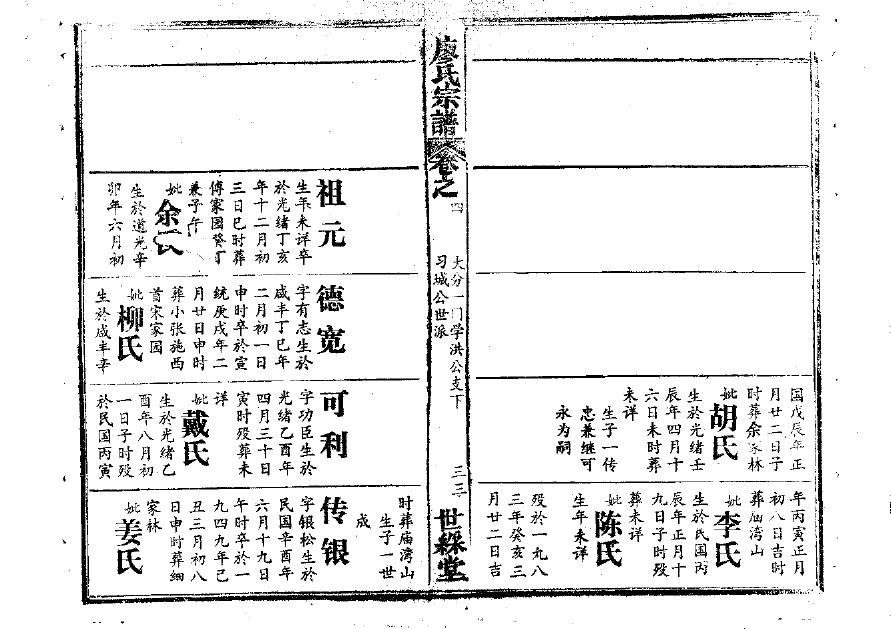 国戊辰年正
月廿二日子
时葬余家林
妣胡氏
生於光绪壬
辰年四月十
六日未时葬
未详
生子一传
忠兼继可
永为嗣
年丙寅正月
初八日吉时
葬庙湾山
妣李氏
生於民国丙
辰年正月十
九日子时殁
葬未详
妣陈氏
生年未详
殁於一九八
三年癸亥三
月廿二日吉
廖氏宗譜卷之四
大分一门学洪公支下
习城公世派
三三
世綵堂
祖元
生年未详卒
於光绪丁亥
年十二月初
三日巳时葬
傅家园癸丁
兼子午
妣余氏
生於道光辛
卯年六月初
德宽
字有志生於
咸丰丁巳年
二月初一日
申时卒於宣
统庚戌年二
月廿日申时
葬小张施西
首宋家园
妣柳氏
生於咸丰辛
可利
字功臣生於
光绪乙酉年
四月三十日
寅时殁葬未
详
妣戴氏
生於光绪乙
酉年八月初
一日子时殁
於民国丙寅
时葬庙湾山
生子一世
成
传银
字银松生於
民国辛酉年
六月十九日
午时卒於一
九四九年己
丑三月初八
日申时葬细
家林
妣姜氏